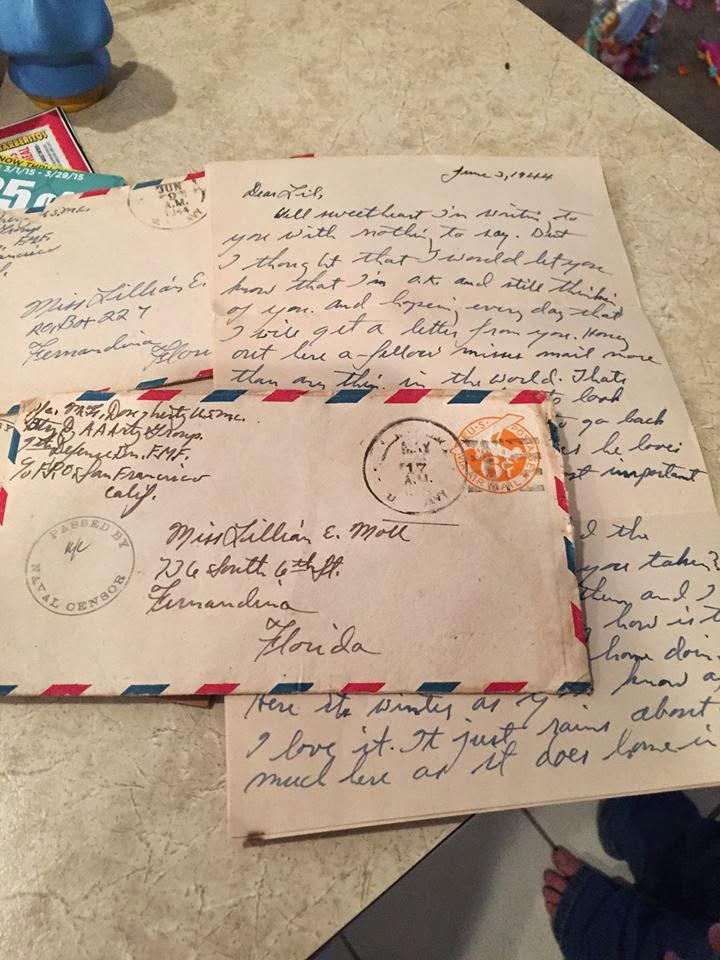 NOW THRU
3/1/15 - 3/29/15
JUN
9
A.M.
1944
Miss Lillian E.
Box 227
Fernandina
June 3, 1944
Dear Lil,
Well sweetheart I'm writin to
you with nothin to say. But
I thought that I would let you
know that I'm o.k. and still thinkin
of you. and hopein every day that
I will get a letter from you. Honey
out here a fellow misses mail more
than any thin in the world. Thats
to look
to go back
he loves
most important
Dougherty U.S.M.C.
Btry D, AA Arty Group,
Defense Bn. F.M.F.
c/o F.P.O. San Francisco
Calif.
MAY
17
A.M.
U.S. POSTAGE
6¢
VIA AIR MAIL
PASSED BY
NAVAL CENSOR
Miss Lillian E. Moll
736 South 6th St.
Fernandina
Florida
the
you taken?
them and I
how is t
home doin
Here its winter as y know a
I love it. It just rains about
much here as it does home in